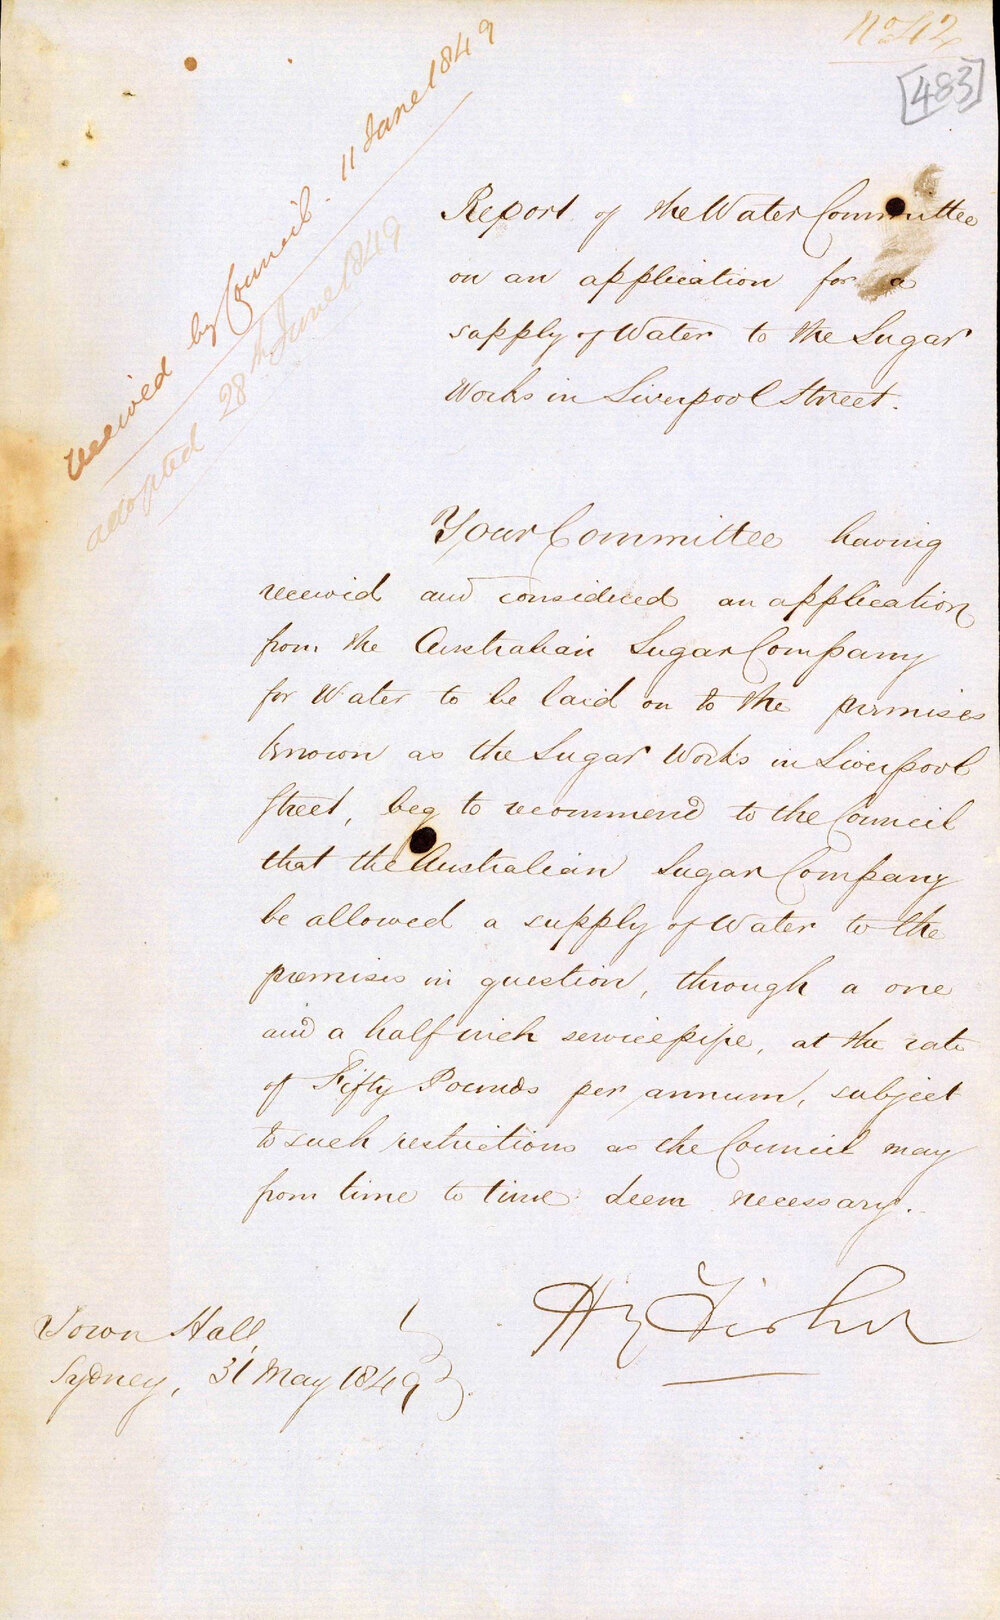 No 42
[483]
received by Council. 11 June 1849
adopted 28th June 1849
Report of the Water Committee
on an application for a
supply of Water to the Sugar
Works in Liverpool Street.
Your Committee having
received and considered an application
from the Australian Sugar Company
for Water to be laid on to the premises
known as the Sugar Works in Liverpool
Street, beg to recommend to the Council
that the Australian Sugar Company
be allowed a supply of Water to the
premises in question, through a one
and a half inch service pipe, at the rate
of Fifty Pounds per annum, subject
to such restrictions as the Council may
from time to time deem necessary.
Hy Fisher
Town Hall,
Sydney, 31 May 1849